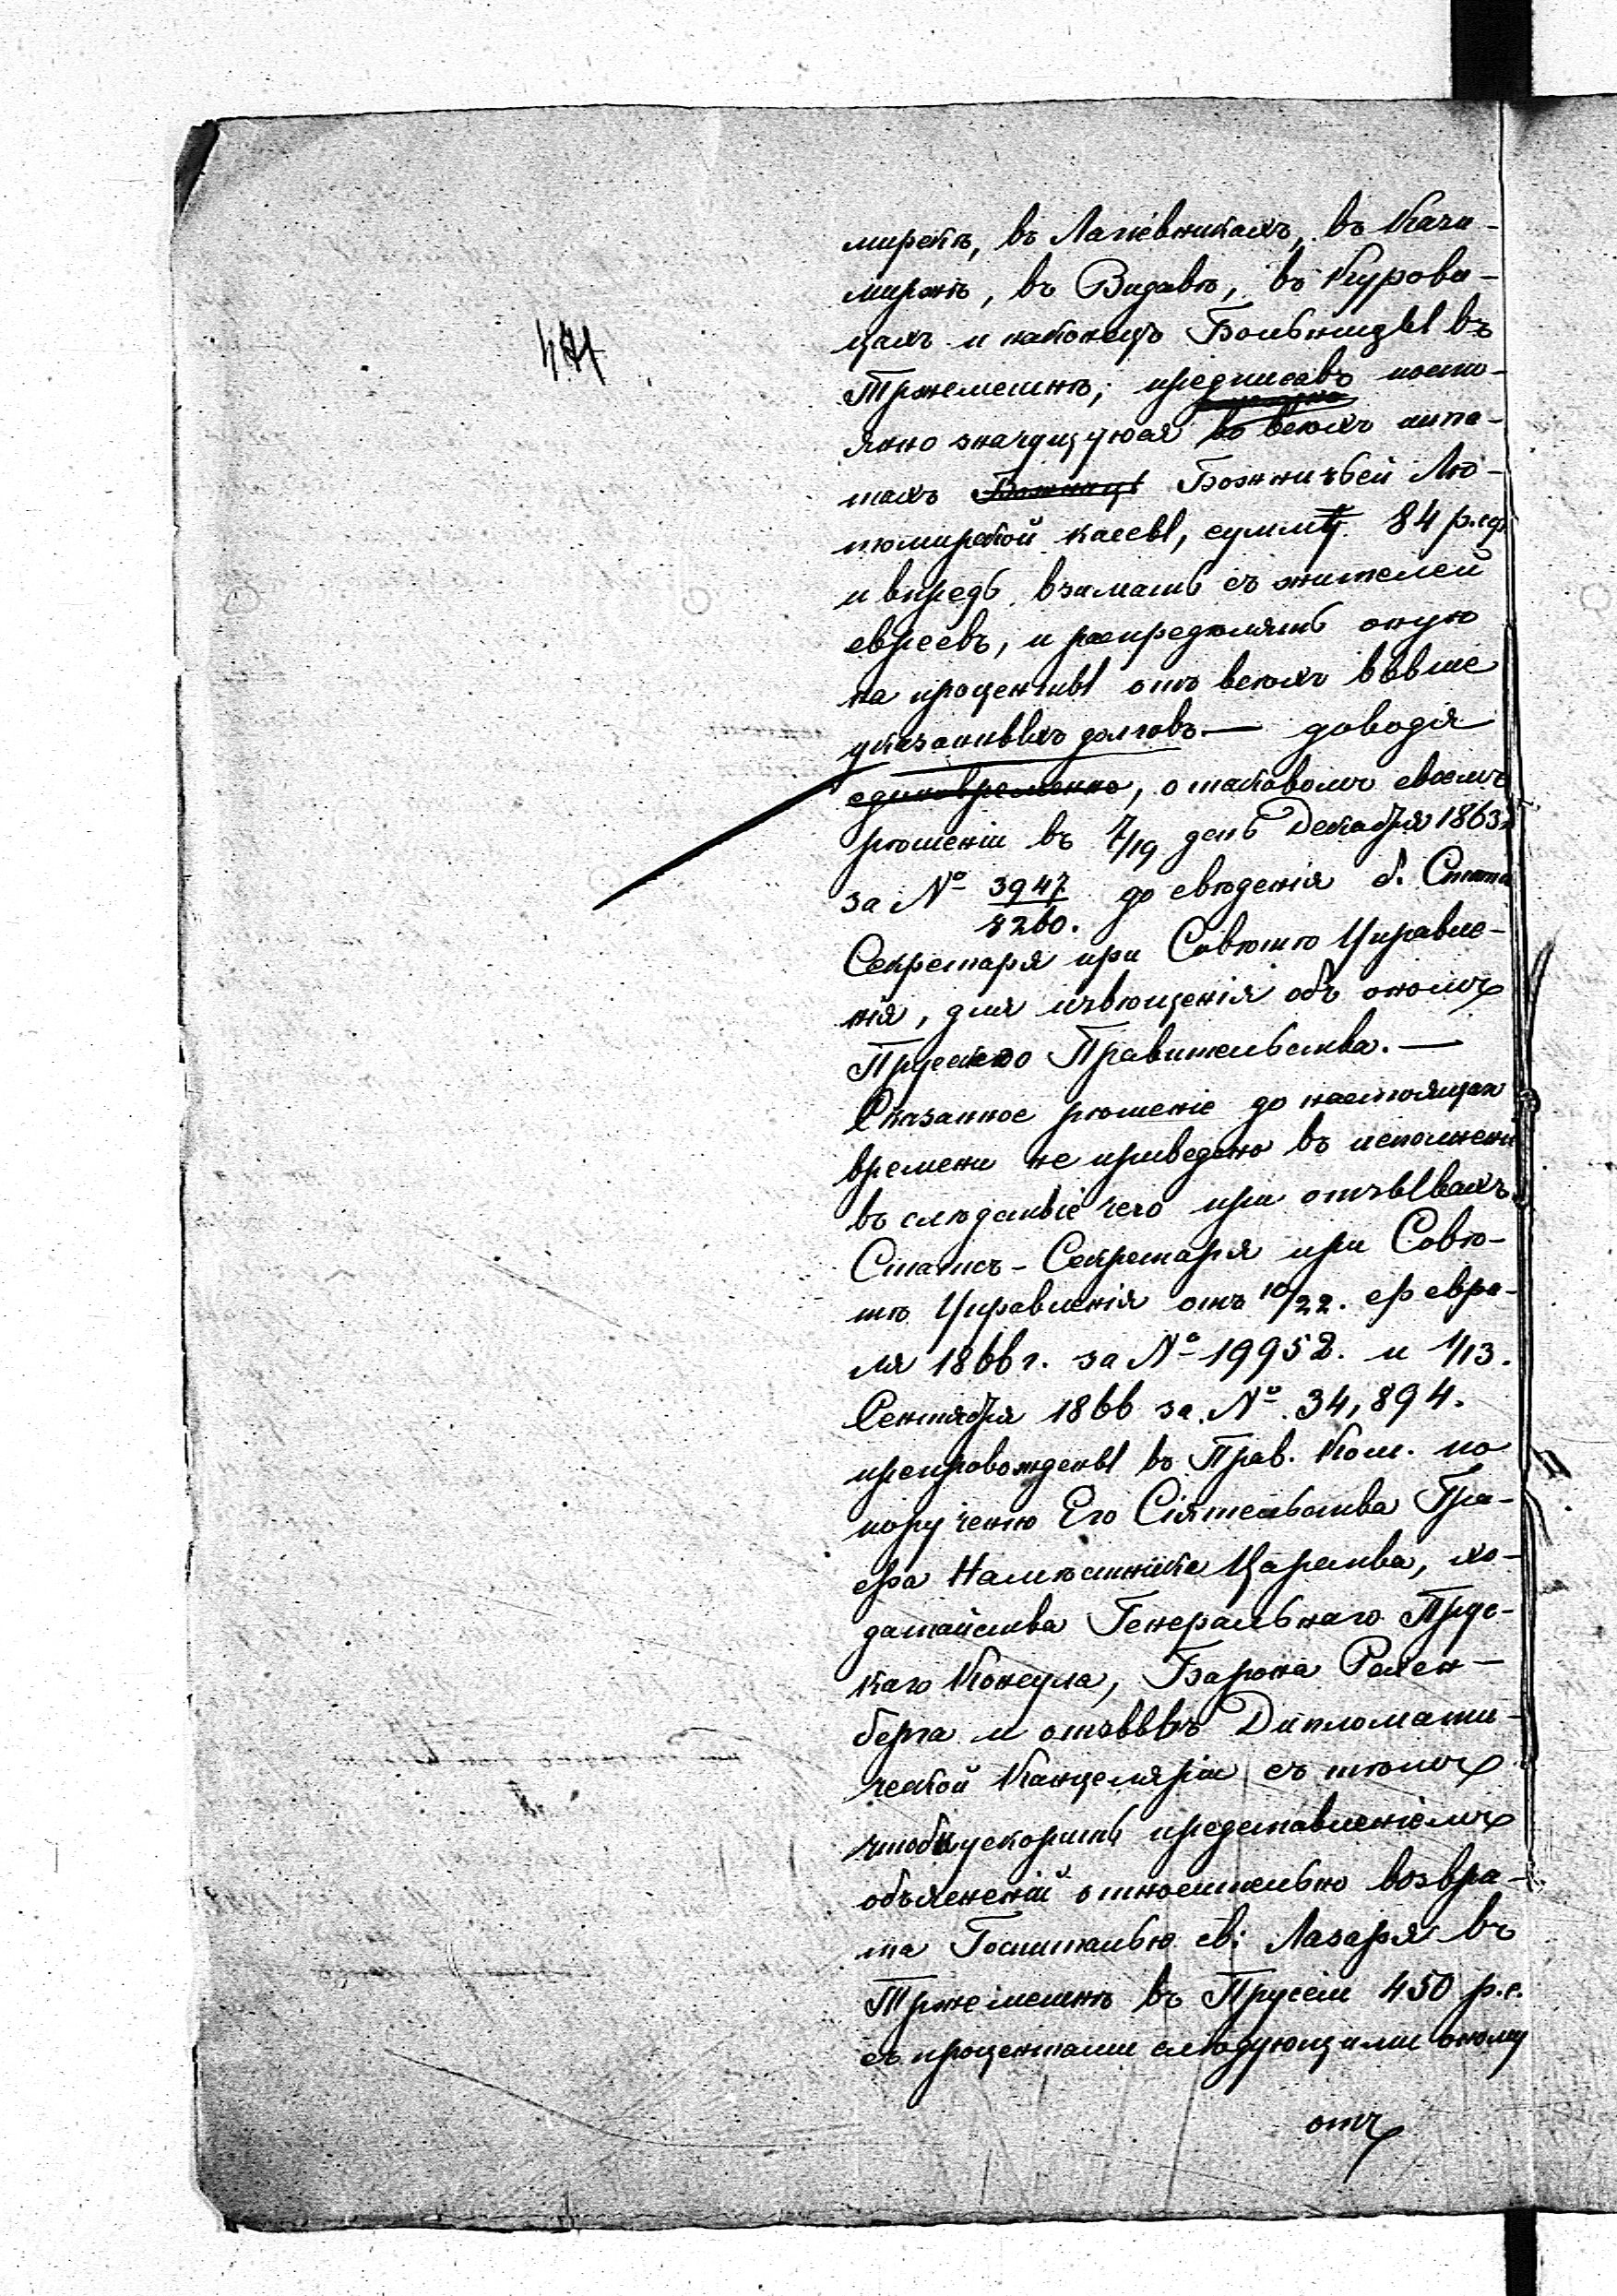 мирскѣ, въ Лагевникахъ, въ Кази-
миржѣ, въ Видавѣ, въ Курови-
цахъ и наконецъ Больницы въ
Тржемешнѣ; предписавъ посто-
янно значущуюся во всѣхъ шта-
тахъ Божницы Божничьей Лю-
томирской кассы, сумму 84 р.ср.
и впредь взимать съ жителей
евреевъ, и распредѣлять оную
на проценты отъ всѣхъ выше
указанныхъ долговъ — доводя
единовременно, о таковомъ своемъ
рѣшеніи въ 7/19 день Декабря 1863 г.
за № 3947/8260. до свѣденія б. Статс
Секретаря при Совѣтѣ Управле-
нія, для извѣщенія объ ономъ
Прускаго Правительства. —
Сказанное рѣшеніе до настоящаго
времени не приведено въ исполненіе
въ слѣдствіе чего при отзывахъ
Статсъ-Секретаря при Совѣ-
тѣ Управленія отъ 10/22. февра-
ля 1866 г. за № 19952. и 1/13.
Сентября 1866 за № 34,894.
препровождены въ Прав. Ком. по
порученію Его Сіятельства Гра-
фа Намѣстника Царства, хо-
датайства Генеральнаго Прус-
каго Консула, Барона Рехен-
берга и отзывъ Дипломати-
ческой Канцеляріи съ тѣмъ
чтобы ускорить представленіемъ
объясненій относительно возвра-
та Госпиталью св: Лазаря въ
Тржемешнѣ въ Прусіи 450 р.с.
съ процентами слѣдующими оному
отъ